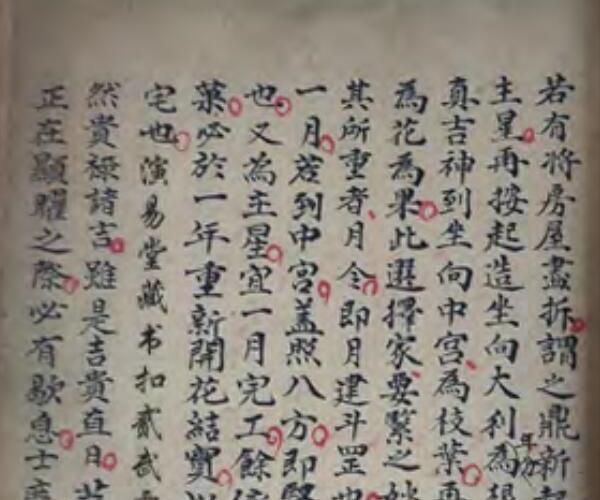 若有將房屋盡拆謂之鼎新
主星再按起造坐向大利為
年分
真吉神到坐向中宮為枝葉再
為花為果此選擇家要緊之
其所重者月令即月建斗罡也
一月若到中宮蓋照八方即
也又為主星宜一月完工餘
葉必於一年重新開花結實
宅也演易堂藏书扣贰贰
然貴祿諸吉雖是吉貴直日若
正在顯耀之際必有歇息士